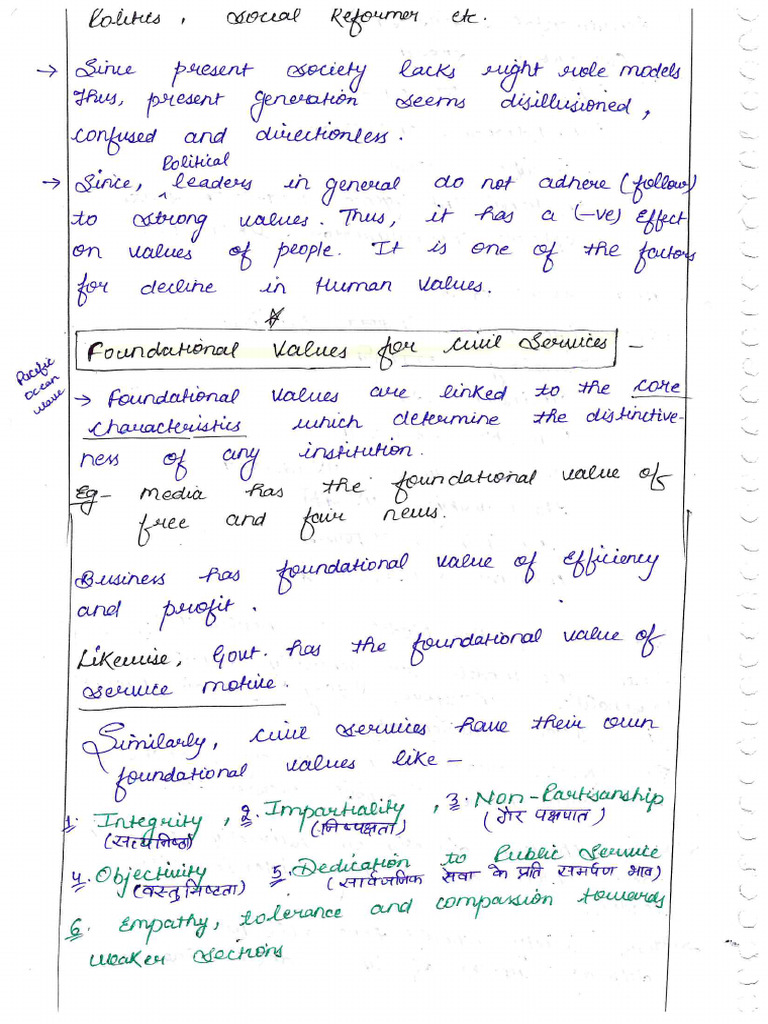 Politics, Social Reformer etc.
→ Since present society lacks right role models
Thus, present generation seems disillusioned,
confused and directionless.
→ Since, Political leaders in general do not adhere (follow)
to strong values. Thus, it has a (-ve) Effect
on values of people. It is one of the factors
for decline in Human Values.
Foundational Values for Civil Services –
Pacific
ocean
wave
→ Foundational values are linked to the core
characteristics which determine the distinctive-
ness of any institution.
Eg – Media has the foundational value of
free and fair news.
Business has foundational value of Efficiency
and profit.
Likewise, Govt. has the foundational value of
service motive.
Similarly, civil services have their own
foundational values like –
1. Integrity, 2. Impartiality, 3. Non-Partisanship
(सत्यनिष्ठा) (निष्पक्षता) (गैर पक्षपात)
4. Objectivity 5. Dedication to Public Service
(वस्तुनिष्ठता) (सार्वजनिक सेवा के प्रति समर्पण भाव)
6. Empathy, tolerance and compassion towards
weaker sections